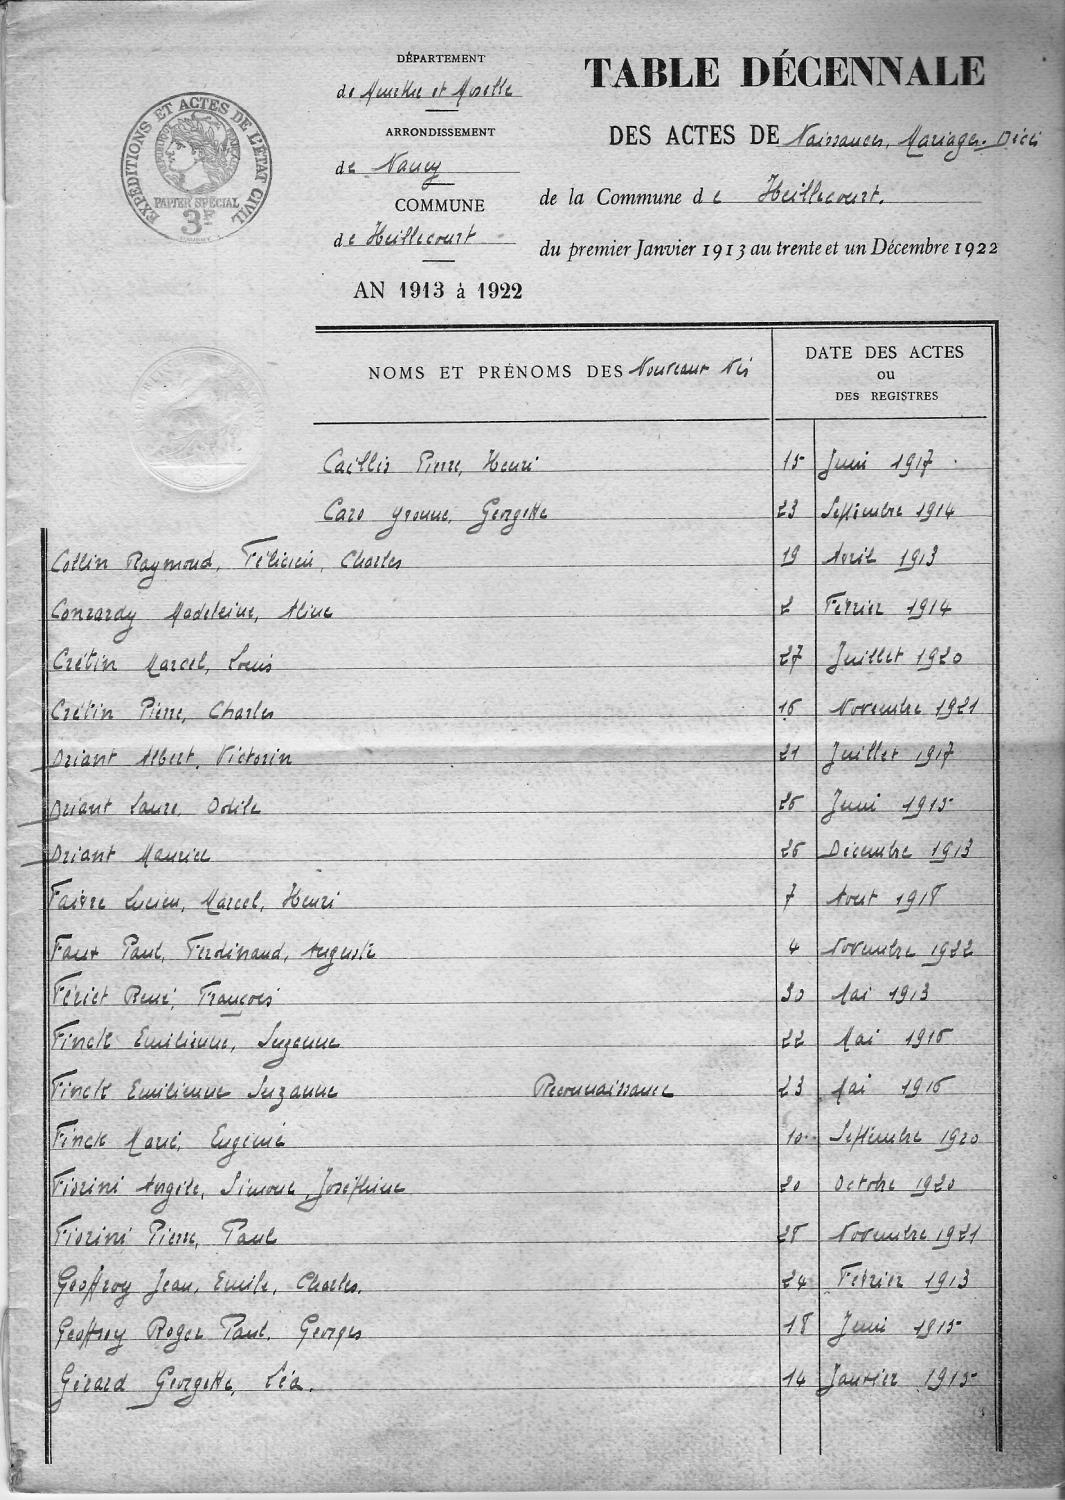 EXPÉDITIONS ET ACTES DE L'ÉTAT CIVIL
PAPIER SPÉCIAL
3F
DÉPARTEMENT
de Meurthe et Moselle
ARRONDISSEMENT
de Nancy
COMMUNE
de Heillecourt
AN 1913 à 1922
TABLE DÉCENNALE
DES ACTES DE Naissances, Mariages. Décè
de la Commune de Heillecourt.
du premier Janvier 1913 au trente et un Décembre 1922
NOMS ET PRÉNOMS DES Nouveaux Nés
DATE DES ACTES
ou
DES REGISTRES
Pierre, Henri 15 Juin 1917
Caro Yvonne, Georgette 23 Septembre 1914
Collin Raymond, Félicien, Charles 19 Avril 1913
Conrardy Madeleine, Aline 2 Février 1914
Crétin Marcel, Louis 27 Juillet 1920
Crétin Pierre, Charles 16 Novembre 1921
Driant Albert, Victorin 21 Juillet 1917
Driant Laure, Odile 26 Juin 1915
Driant Maurice 26 Décembre 1913
Faivre Lucien, Marcel, Henri 7 Aout 1918
Faux Paul, Ferdinand, Auguste 4 Novembre 1922
Fériet René, François 30 Mai 1913
Finck Emilienne, Suzanne 22 Mai 1916
Finck Emilienne Suzanne Reconnaissance 23 Mai 1916
Finck Marie, Eugénie 10 Septembre 1920
Fiorini Angèle, Simone, Joséphine 20 Octobre 1920
Fiorini Pierre, Paul 28 Novembre 1921
Geoffroy Jean, Emile, Charles. 24 Février 1913
Geoffroy Roger Paul, Georges 18 Juin 1915
Gérard Georgette, Léa. 14 Janvier 1915